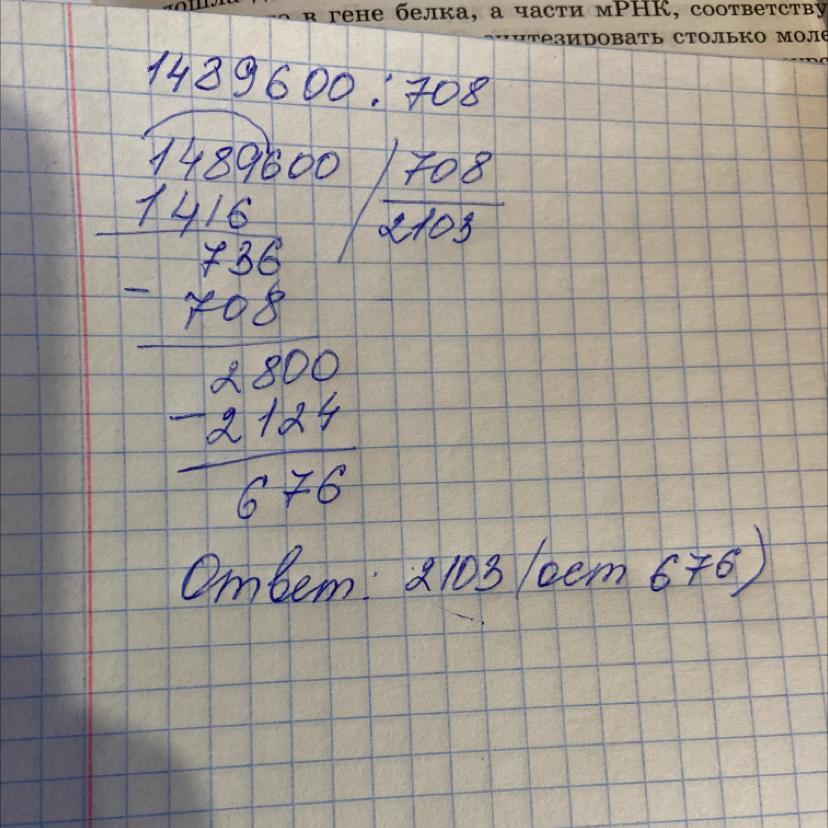 в гене белка, а части мРНК, соответству
синтезировать столько моле
1489600 : 708
1489600 708
1416 2103
736
- 708
2800
- 2124
676
Ответ: 2103 (ост 676)